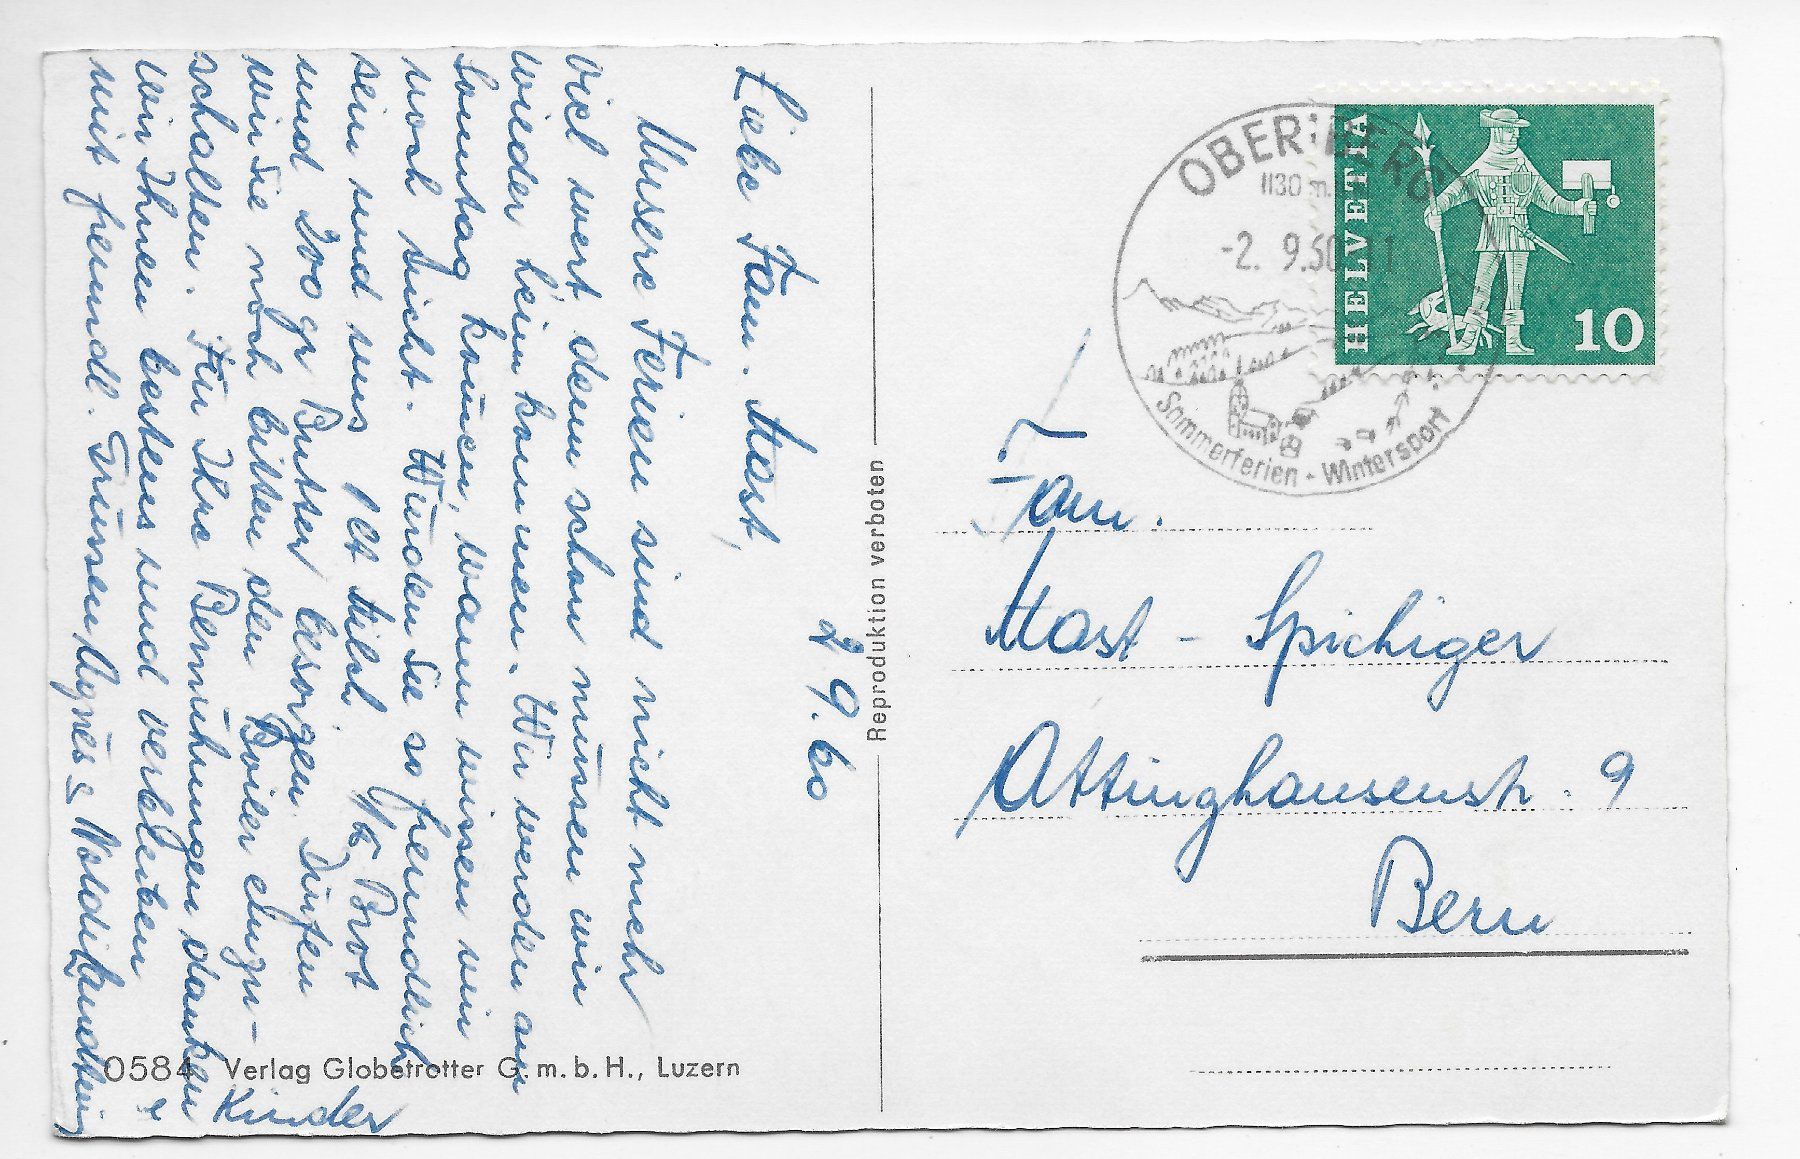 2. 9. 60
Liebe Fam. Mast,
Unsere Ferien sind nicht mehr
viel wert denn schon müssen wir
wieder heim kommen. Wir werden am
Sonntag kommen, wann wissen wir
noch nicht. Würden Sie so freundlich
sein und uns 1 lt Milch 1/2 Brot
und 200 gr Butter besorgen. Dürfen
wir Sie noch bitten den Boiler einzu-
schalten. Für Ihre Bemühungen danken
wir Ihnen bestens und verbleiben
mit freundl. Grüssen Agnes &
& Kinder
Reproduktion verboten
0584 Verlag Globetrotter G.m.b.H., Luzern
OBERIBERG
1130 m.
-2. 9.60
Sommerferien - Wintersport
HELVETIA
10
Fam.
Mast - Spichiger
Attinghausenstr. 9
Bern